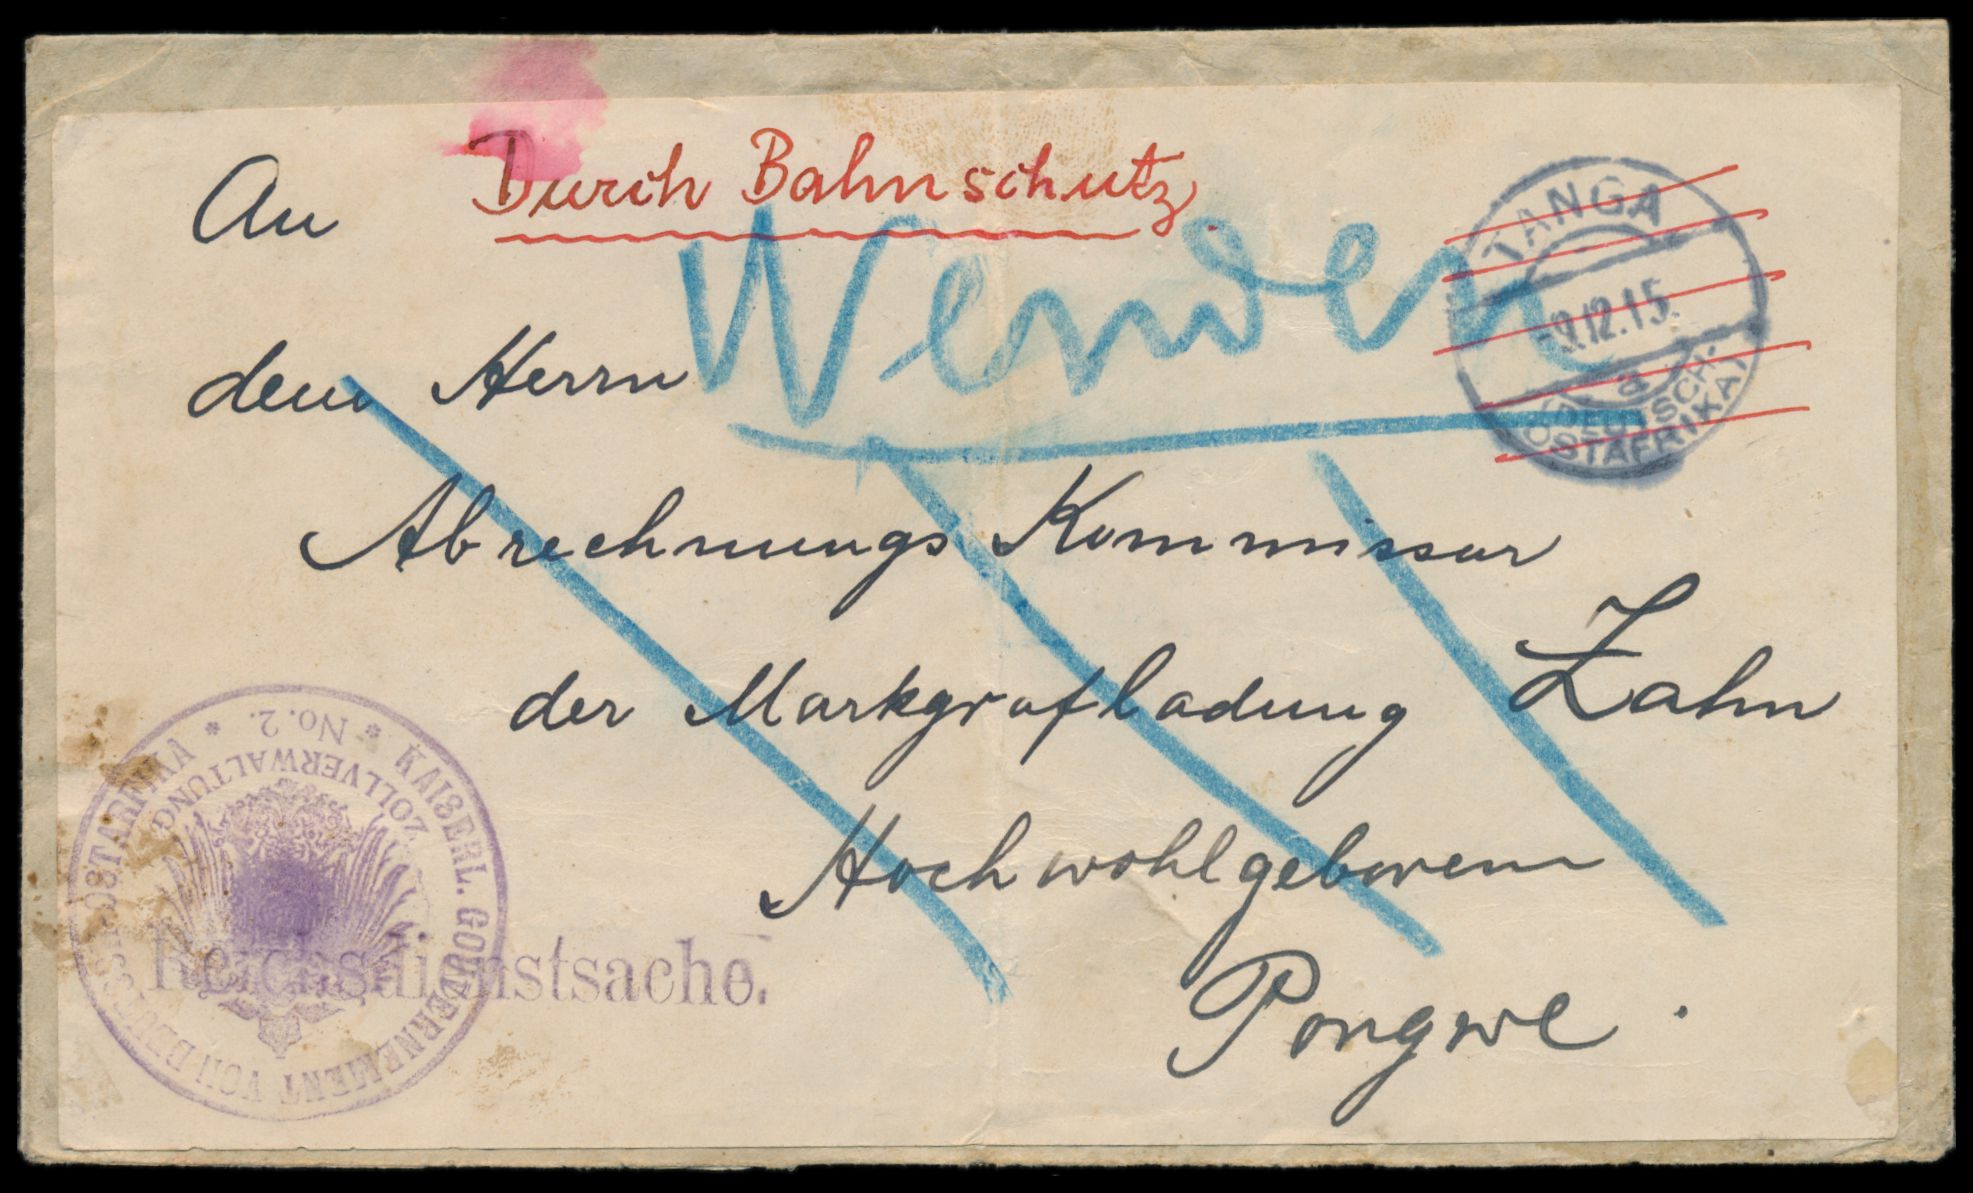 Durch Bahnschutz
An
Wenden
TANGA
-9.12.15.
a
(DEUTSCH-
OSTAFRIKA)
dem Herrn
Abrechnungs Kommissar
der Markgrafladung Zahn
Hochwohlgeboren
Pongwe.
KAISERL. GOUVERNEMENT VON DEUTSCH-OSTAFRIKA
* No. 2. *
ZOLLVERWALTUNG
Reichsdienstsache.